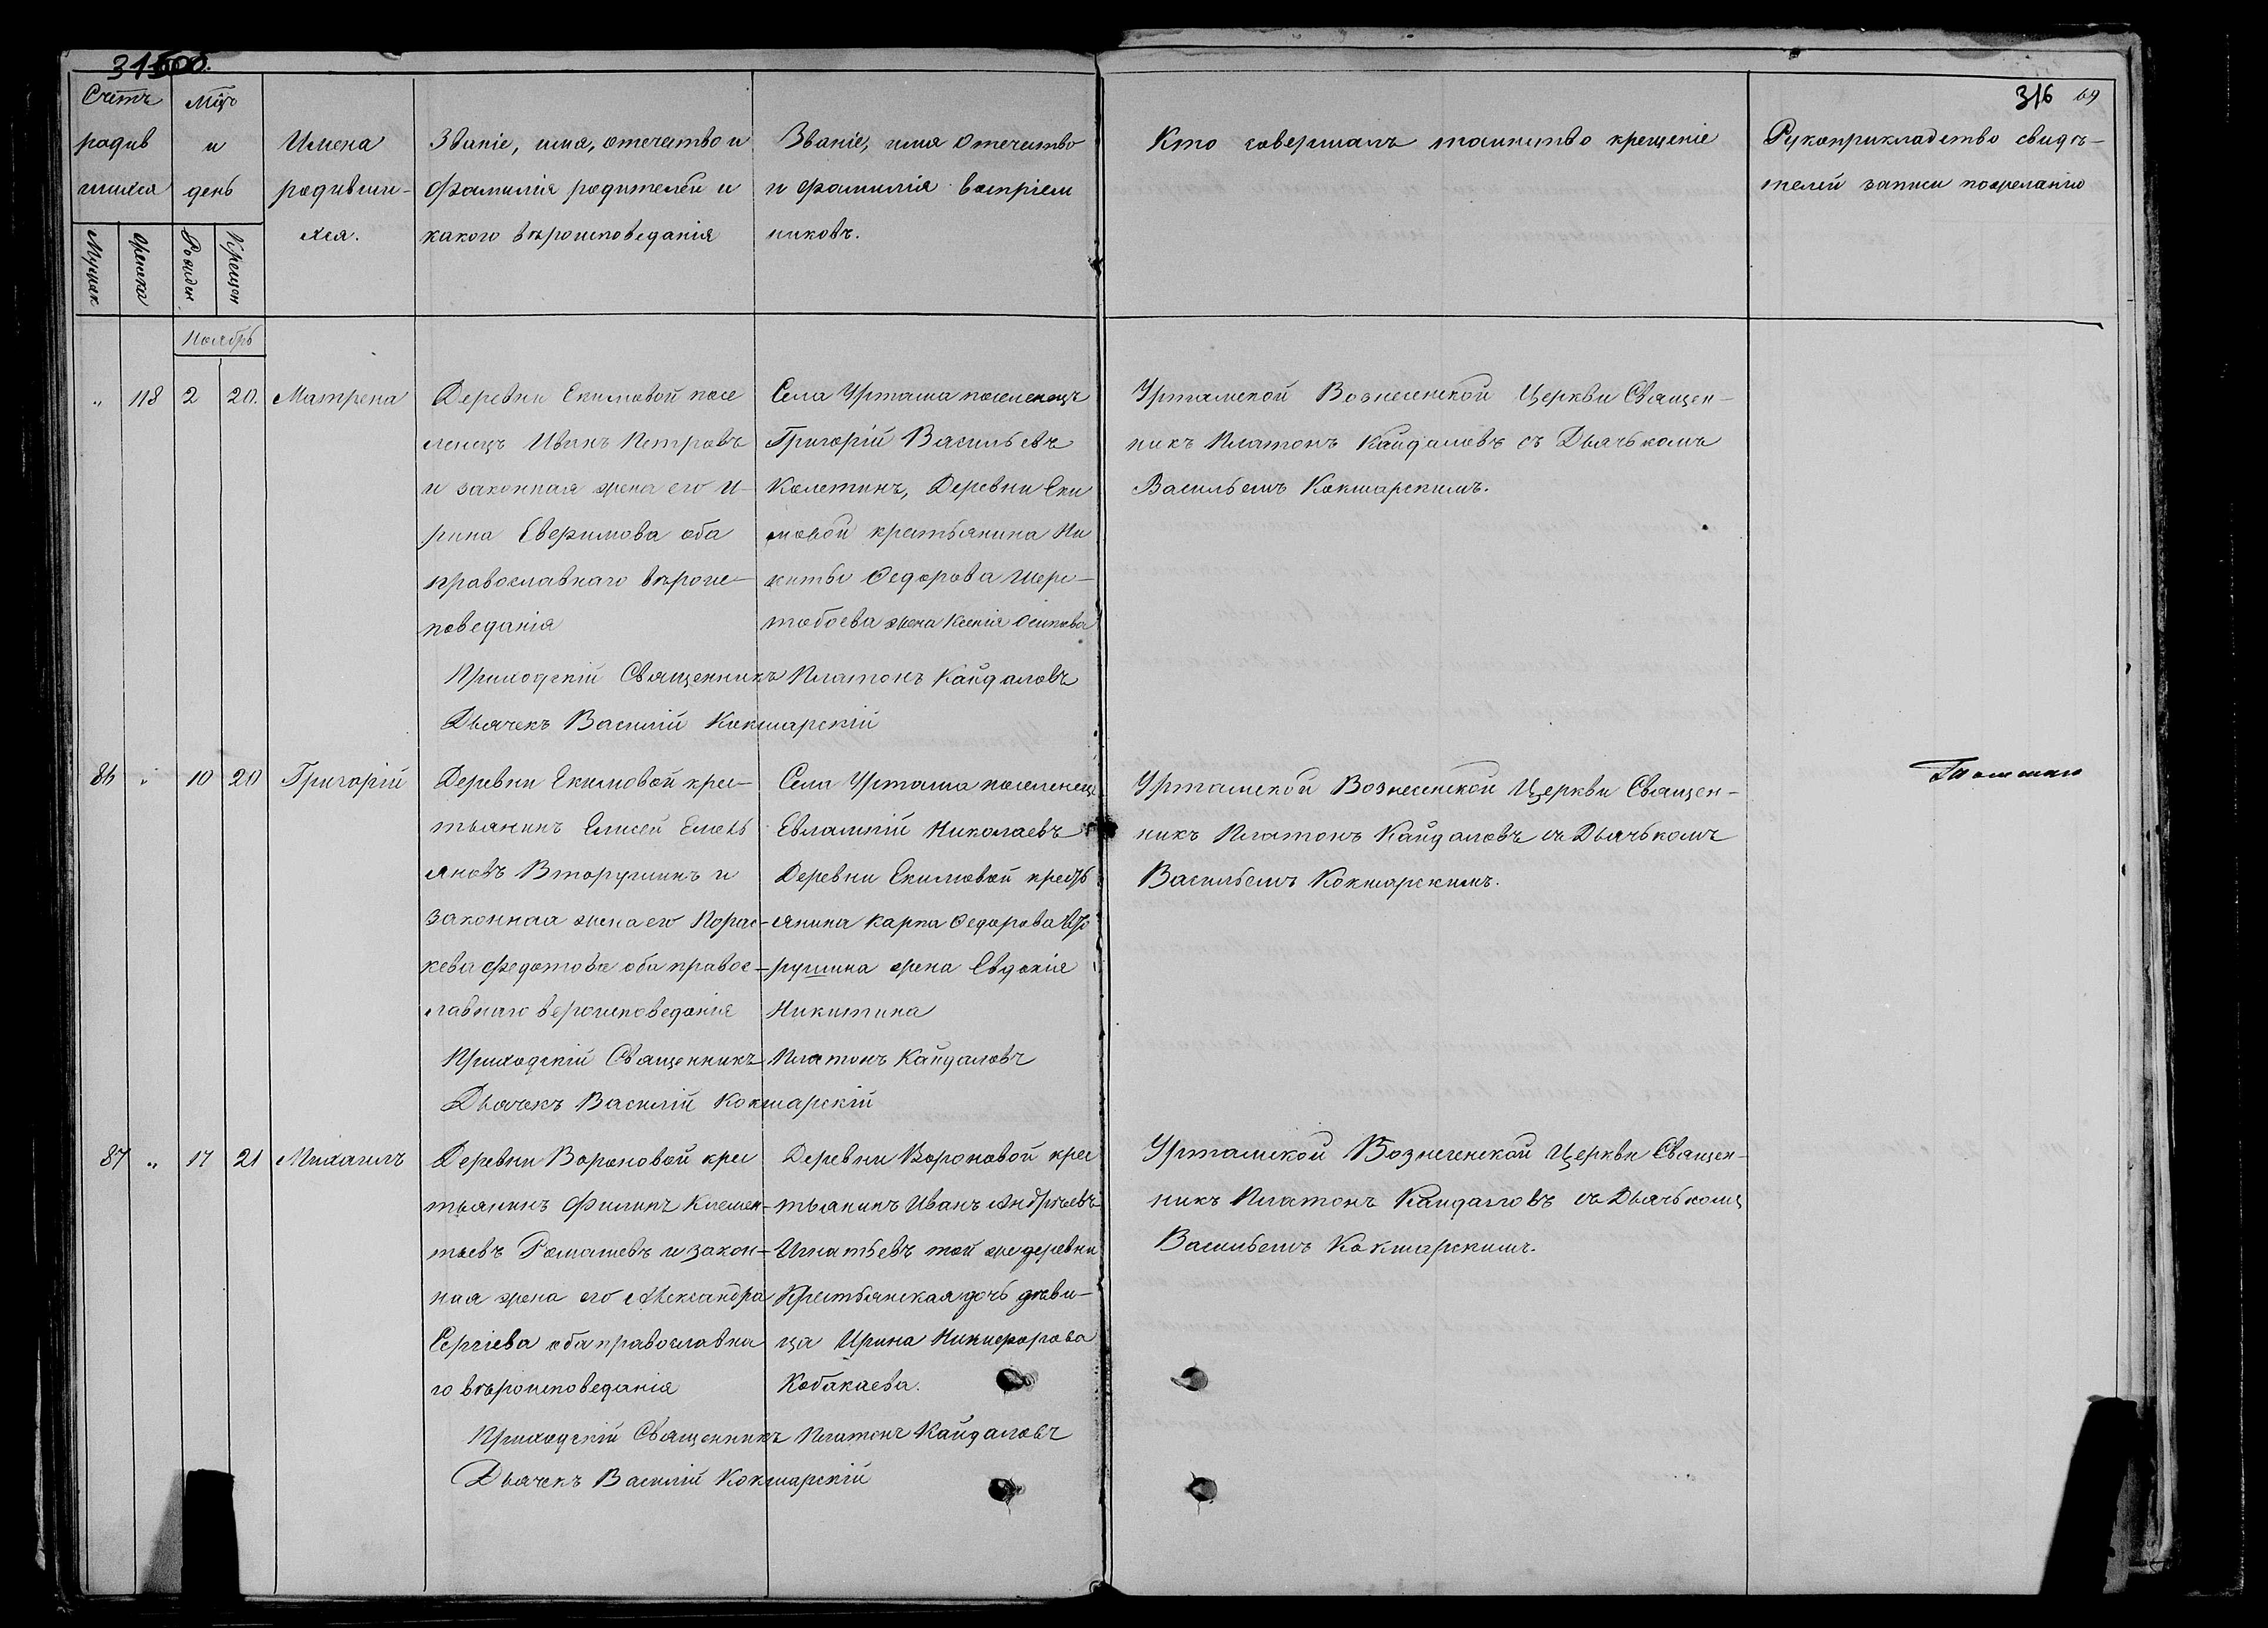 316 69
Счетъ родив шихся
Мѣсяцъ и день
Имена родивши- хся.
Званіе, имя, отечество и фамилія родителей и какого вѣроисповеданія
Званіе, имя отечество и фамилія воспріем никовъ.
Кто совершалъ таинство крещеніе
Рукоприкладство свидѣ- телей записи по желанію
Мужск
Женска
Рожден.
Крещен
Ноябрь
" 118 2 20. Матрена
Деревни Екимовой посе
ленецъ Иванъ Петровъ
и законная жена его И-
рина Евфимова оба
православнаго вѣроис-
поведанія
Села Уртама поселенецъ
Григорій Васильевъ
Колетинъ, Деревни Еки
мовой крестьянина Ни
киты Федорова Шерс-
тобоева жена Ксенія Осипова
Уртамской Вознесенской Церкви Священ-
никъ Платонъ Кайдаловъ съ Дьячькомъ
Васильемъ Кокшарскимъ.
Приходскій Священникъ Платонъ Кайдаловъ
Дьячекъ Василій Кокшарскій
86 " 10 20 Григорій
Деревни Екимовой крес-
тьянинъ Елисей Емель
яновъ Вторушинъ и
законная жена его Порас-
кева Федотова оба правос-
лавнаго вероисповеданія
Села Уртама поселенецъ
Евлампій Николаевъ
Деревни Екимовой кресть
янина Карпа Федорова Вто
рушина жена Евдокія
Никитина
Уртамской Вознесенской Церкви Священ-
никъ Платонъ Кайдаловъ съ Дьячькомъ
Васильемъ Кокшарскимъ.
Приходскій Священникъ Платонъ Кайдаловъ
Дьячекъ Василій Кокшарскій
87 " 17 21 Михаилъ
Деревни Вороновой крес
тьянинъ Филипъ Клемен-
тьевъ Ромашевъ и закон-
ная жена его Александра
Сергіева оба православна
го вѣроисповеданія
Деревни Вороновой крес
тьянинъ Иванъ Андрѣевъ
Игнатьевъ той же деревни
Крестьянская дочь дѣви-
ца Ирина Никифорова
Кобакаева.
Уртамской Вознесенской Церкви Священ-
никъ Платонъ Кайдаловъ съ Дьячькомъ
Васильемъ Кокшарскимъ.
Приходскій Священникъ Платонъ Кайдаловъ
Дьячекъ Василій Кокшарскій